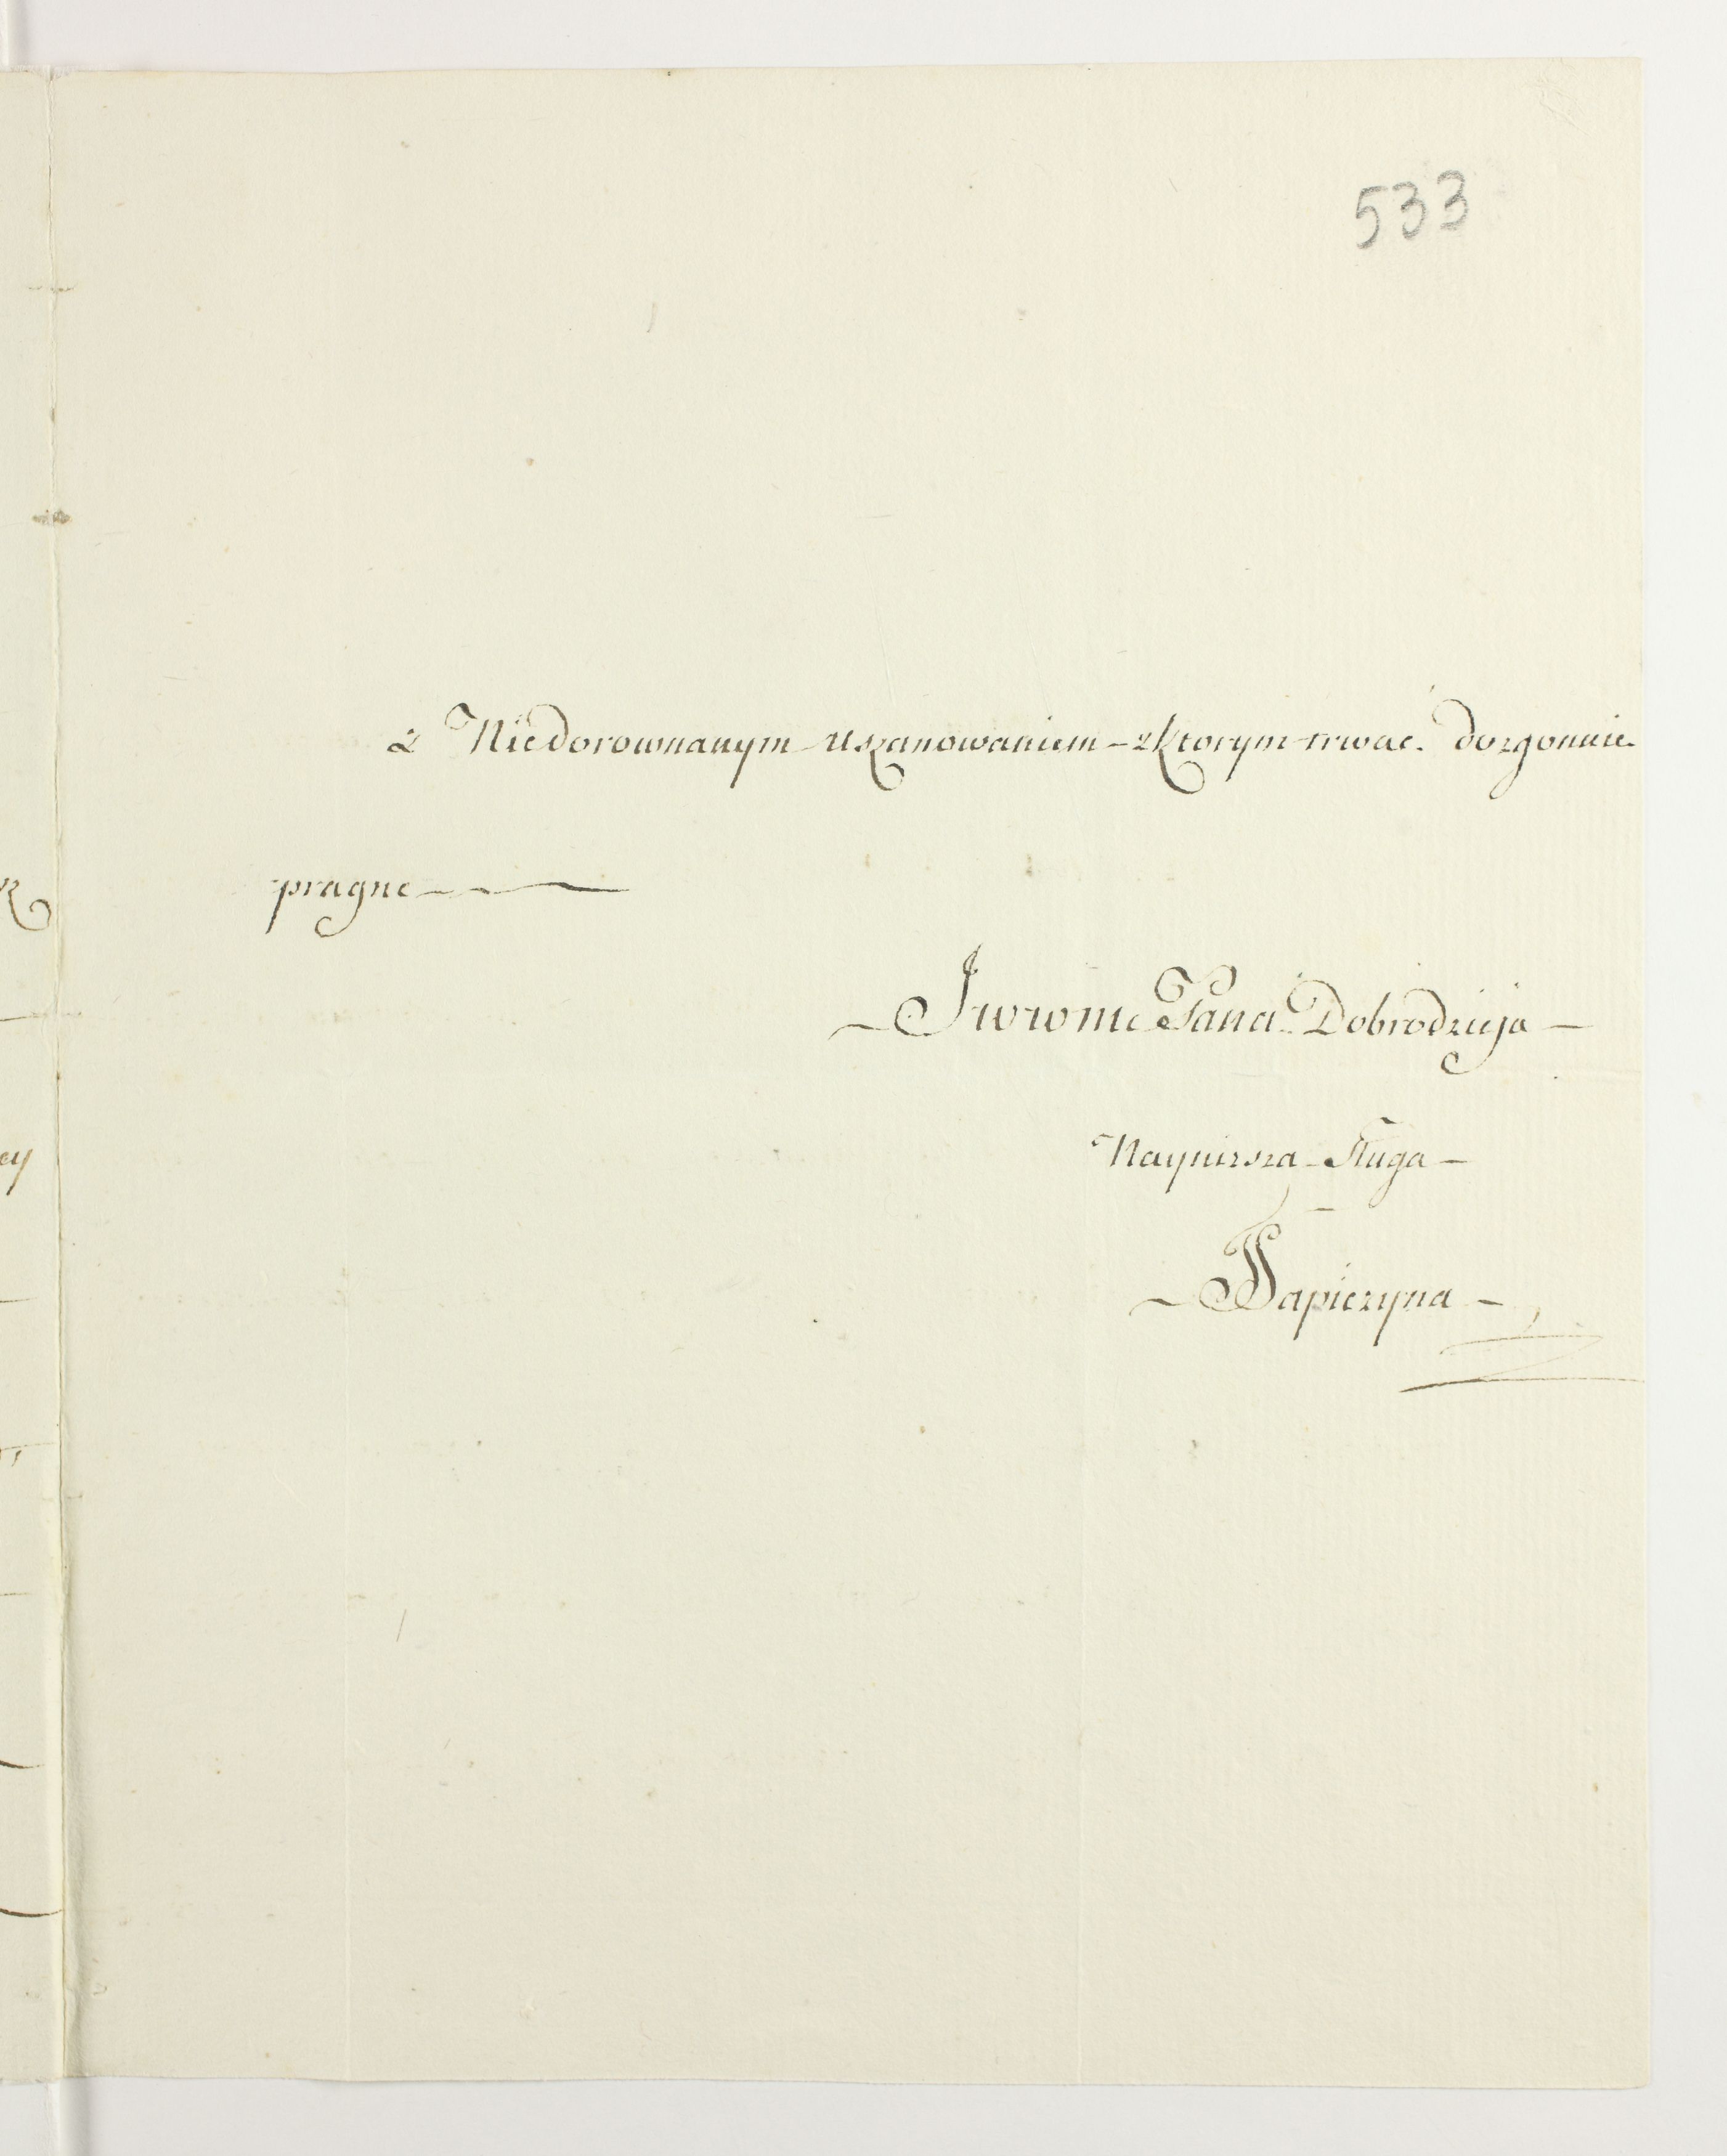 533
z Niedorownanym Uszanowaniem - zktorym trwac dozgonnie
pragne
Jwwmc Pana Dobrodzieja -
Nayniższa - Sługa -
- Sapieżyna -